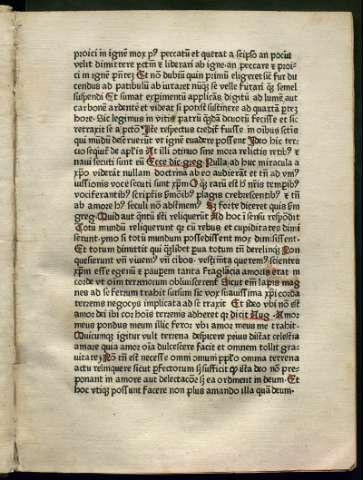 proici in ignē mox pꝰ peccatū et querat a seipso an pociꝰ
velit dimittere pctm̄ ⁊ liberari ab igne· an peccare ⁊ proi-
ci in ignē pn̄tez Et nō dubiū quin primū eligeret sic̄ fur du
cendus ad patibulū ab iuraret nūqz̄ se velle furari qz̄ semel
suspendi Et sumat expimentū applicās digitū ad lumē aut
carbonē ardentē et videat si potest sustinere ad quartā ptez
hore· Sic legimus in vitis patrū qn̄dā deuotū fecisse et sic
retraxit se a pctō Iste respectus credit̄ fuisse in oibus sctis
qui mūdū deseruerūt vt ignē euadere possent Ideo hic ter-
cio sequit̄ de aplis At illi ꝯtinuo sine mora relictis retibꝰ ⁊
naui secuti sunt eū Ecce dic̄ greg· Nulla ad huc miracula a
xpō viderāt nullam doctrina ab eo audierāt et tn̄ ad vnꝰ
iussionis voce secuti sunt xpm̄ O qz̄ rari est hijs nr̄is tempibꝰ
vociferantibꝰ scripturis pmōibꝰ plagis crebrescentibꝰ ⁊ tn̄
ab amore hꝰ seculi nō abstinem̄ Si forte diceret quis scd̄m
greg· Quid aut qn̄tū isti reliquerūt Ad hoc isensu respōdit
Totū mundū reliquerunt qr cū rebus et cupiditates dimi
serunt· ymo si totū mundum possedissent mox dimisissent·
Et totum dimittit qui qz̄libet pua totum n̄ derelinqt̄ Non
quesierunt vn̄ viuem̄ vn̄ cibos· vestim̄ta queremꝰ scientes
xpm̄ esse egenū ⁊ paupem tanta fraglācia amoris erat in
corde vt oim terrenorum obliuiscerent̄ Sicut em̄ lapis mag
nes ad se ferrum trahit sursum sic vox suauissima xpi corda
terrenis negocijs implicata ad se traxit Et ideo vbi nō est
amor dei ibi cor hoīs terrenis adheret qr dicit Aug· Amor
meus pondus meum illic feror vbi amor meus me trahit·
Quicunqz igitur vult terrena despicere prius discat celestia
amare quia amor oīa dulcescere facit et omnem tollit gra-
uitatē Nō tn̄ est necesse om̄i omnium ppt̄o omnia terrena
actu relinquere sicut pfectorum sz̄ sufficit qp̄ ista deo nō pre-
ponant in amore aut delectacōe sz̄ ea ordinent in deum· Et
hoc vtiqz possunt facere non plus amando illa qz̄ deum·